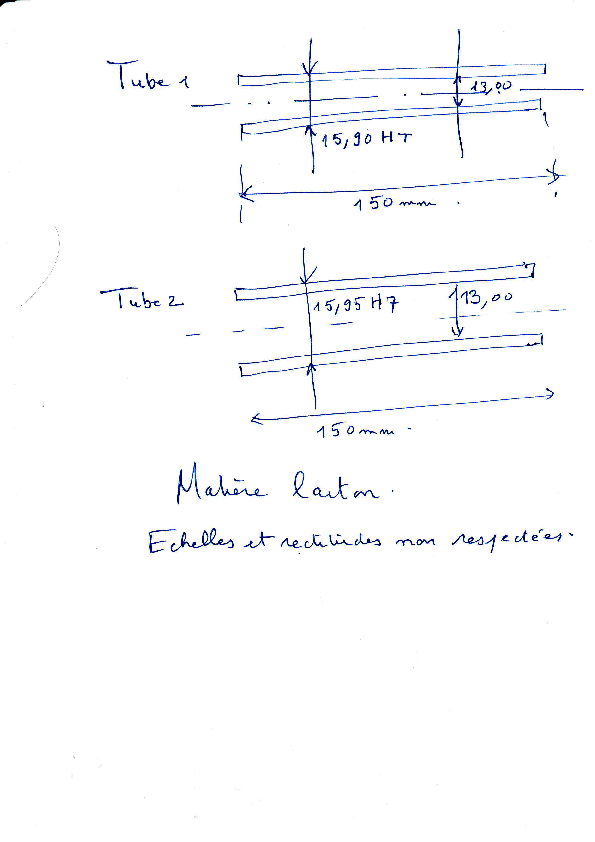 Tube 1
13,00
15,90 H7
150 mm .
Tube 2
15,95 H7
13,00
150 mm .
Matière laiton .
Echelles et rectitudes non respectées .